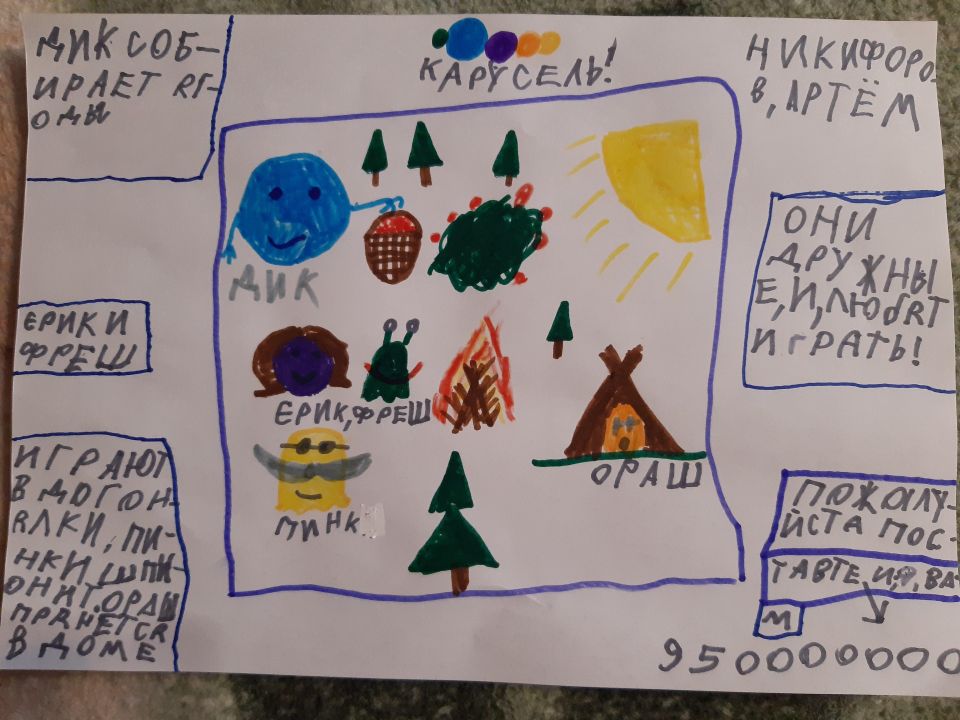 ДИК СОБ-
ИРАЕТ ЯГ-
ОДЫ
КАРУСЕЛЬ!
НИКИФОРО-
В, АРТЁМ
ДИК
ОНИ
ДРУЖНЫ
Е, И, ЛЮБЯТ
ИГРАТЬ!
ЕРИК И
ФРЕШ
ЕРИК, ФРЕШ
ОРАШ
ПИНК
ИГРАЮТ
В ДОГОН-
ЯЛКИ, ПИ-
НКИ ШПИ-
ОНИТ. ОРАШ
ПРЯЧЕТСЯ
В ДОМЕ
ПОЖАЛУ-
ЙСТА ПОС-
ТАВТЕ, ВА
М
9500000000